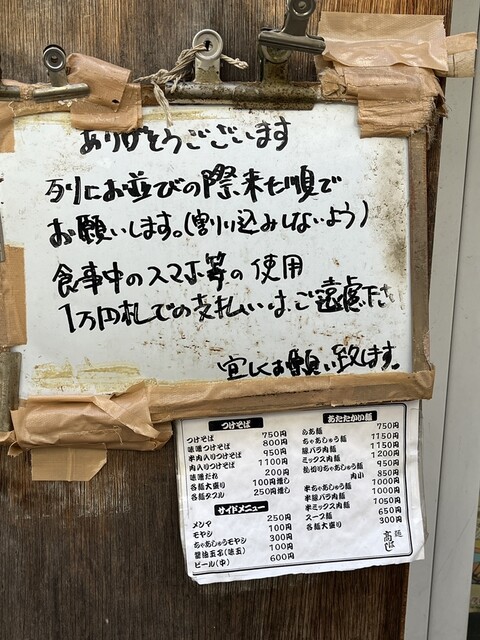 ありがとうございます
列にお並びの際、来た順で
お願いします。(割り込みしないよう)
食事中のスマホ等の使用
1万円札での支払いは、ご遠慮下さ
宜しくお願い致します。
つけそば
つけそば 750円
味噌つけそば 800円
半肉入りつけそば 950円
肉入りつけそば 1100円
味噌だれ 200円
各麺大盛り 100円増し
各麺ダブル 250円増し
サイドメニュー
メンマ 250円
モヤシ 100円
ちゃあしゅうモヤシ 300円
醤油玉子(味玉) 100円
ビール(中) 600円
あたたかい麺
らあ麺 750円
ちゃあしゅう麺 1150円
豚バラ肉麺 1150円
ミックス肉麺 1200円
切りちゃあしゅう麺 950円
肉小 850円
半ちゃあしゅう麺 1000円
半豚バラ肉麺 1000円
半ミックス肉麺 1050円
スープ麺 650円
各麺大盛り 300円
麺
高はし